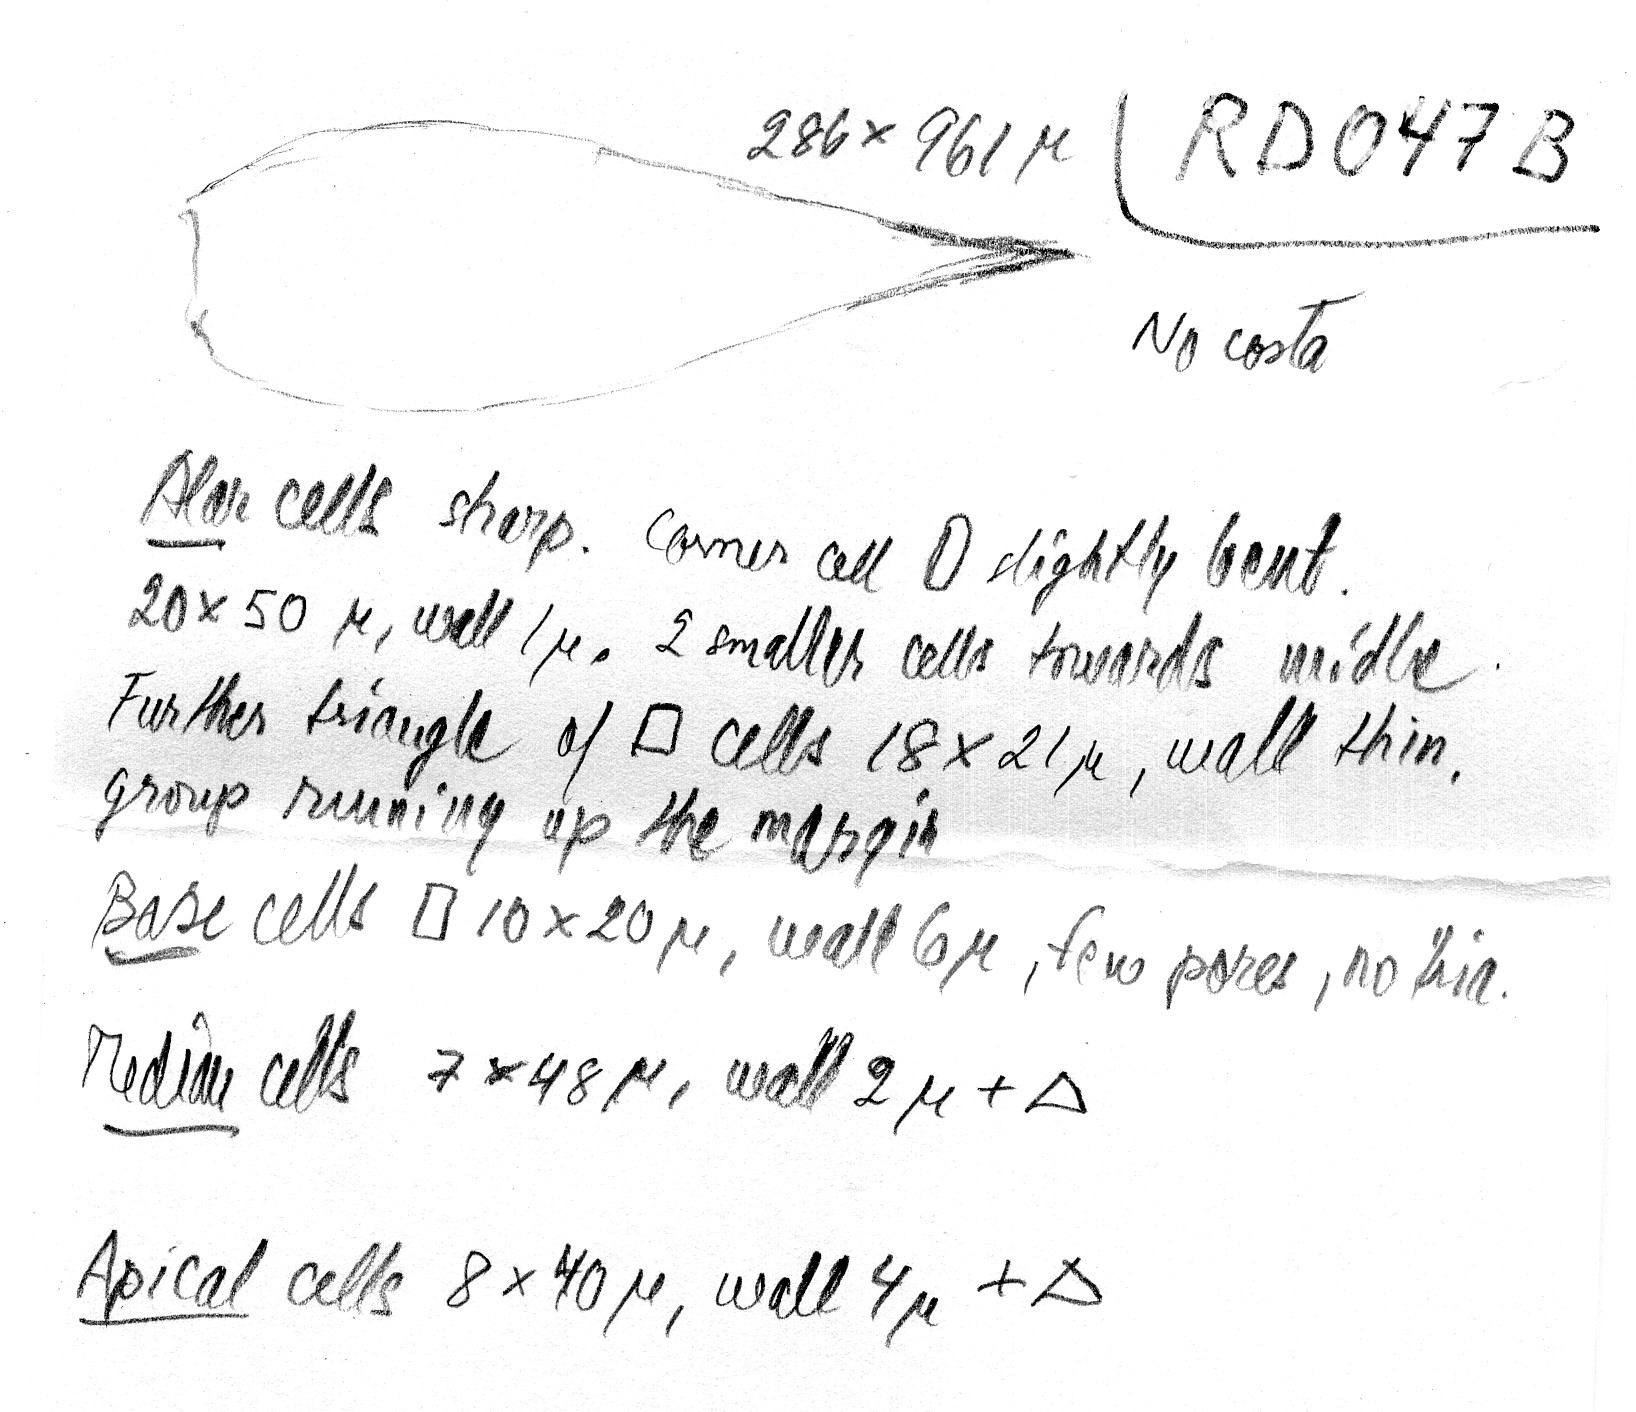 286 × 961 µ
RD047B
No costa
Alar cells sharp. Corner cell ▯ slightly bent.
20 × 50 µ, wall 1µ. 2 smaller cells towards midle.
Further triangle of □ cells 18 × 21µ, wall thin,
group runing up the margin
Base cells ▯ 10 × 20 µ, wall 6µ, few pores, no
Median cells 7 × 48 µ, wall 2 µ + △
Apical cells 8 × 40 µ, wall 4µ + △